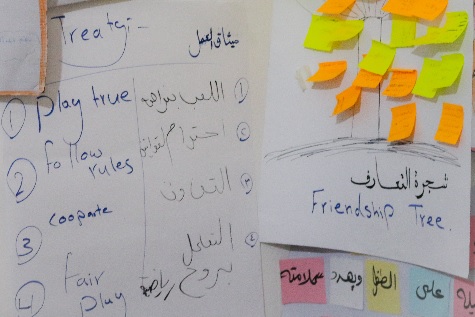 Treaty:-
ميثاق العمل
① play true
② follow rules
③ cooparte
④ Fair play
① اللعب بنزاهة
② احترام القوانين
③ التعاون
④ التعامل بروح رياضية
شجرة التعارف
Friendship Tree.
على الطفل ويهدد سلامته